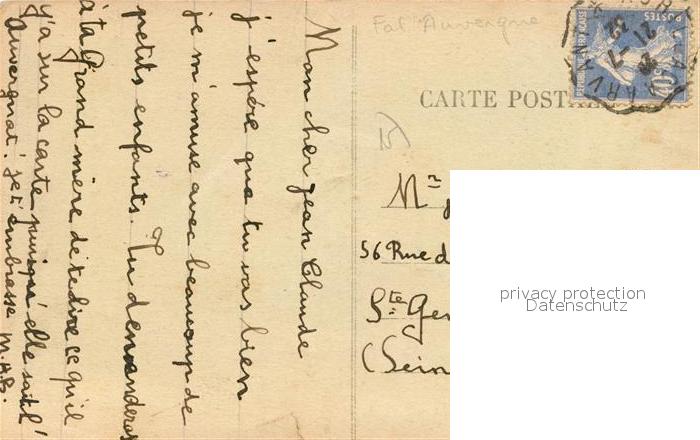 Mon cher Jean Claude
j'espère que tu vas bien
je m'amuse avec beaucoup de
petits enfants. Tu demanderas
à ta Grand mère de te dire ce qu'il
y'a sur la carte puisqu'elle sait l'
Auvergnat. je t'embrasse M.A.B.
Fal Auvergne
CARTE POSTA
15)
Mr J
56 Rue d
Ste Gen
(Sein
POSTES
40c
privacy protection
Datenschutz